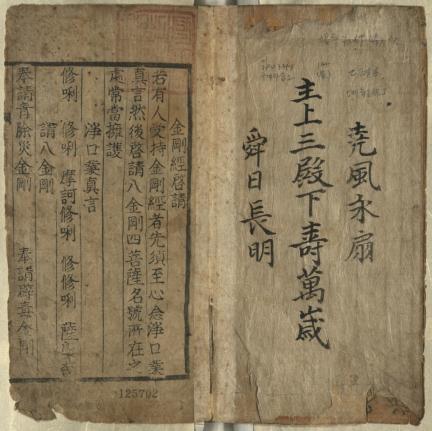 堯風永扇
主上三殿下壽萬歲
舜日長明
金剛經啓請
若有人受持金剛經者先須至心念淨口業
真言然後啓請八金剛四菩薩名號所在之
處常當擁護
淨口業真言
修唎 修唎 摩訶修唎 修修唎
請八金剛
奉請青除災金剛 奉請辟毒金剛
125702